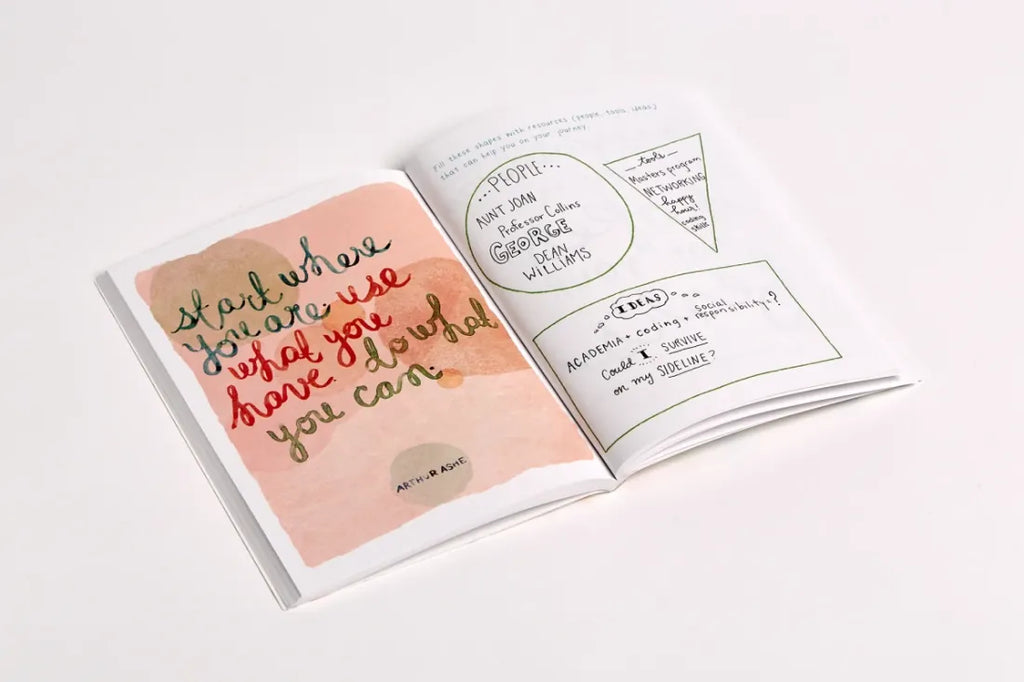 start where
you are. use
what you
have. do what
you can.
ARTHUR ASHE
Fill these shapes with resources (people, tools, ideas)
that can help you on your journey
...PEOPLE...
AUNT JOAN
Professor Collins
GEORGE
DEAN
WILLIAMS
—tools—
Masters program
NETWORKING
happy
hour!
coding
skills
IDEAS
ACADEMIA + coding + social responsibility = ?
Could I SURVIVE
on my SIDELINE?